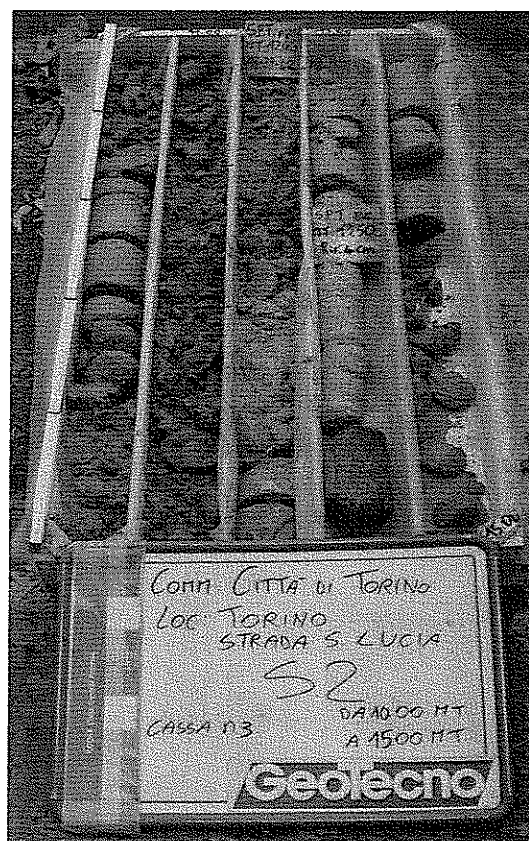 COMM CITTÀ DI TORINO
LOC TORINO
STRADA S LUCIA
S2
CASSA N3
DA 10 00 MT
A 15 00 MT
GEOTECNO